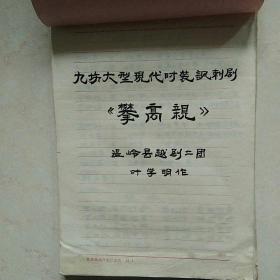 九场大型现代时装讽刺剧
《攀高親》
温岭县越剧二团
叶学明作